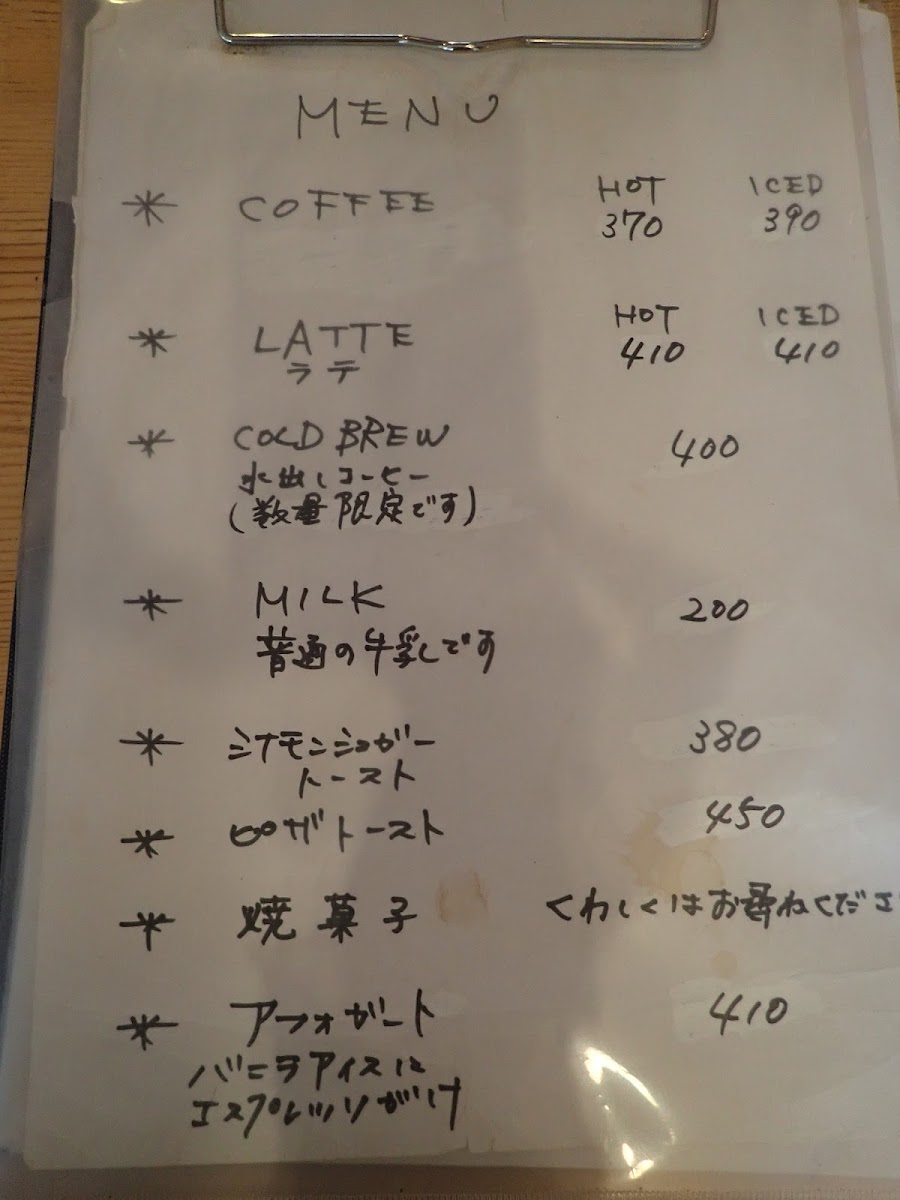 MENU
* COFFEE HOT ICED
370 390
* LATTE HOT ICED
ラテ 410 410
* COLD BREW 400
水出しコーヒー
(数量限定です)
* MILK 200
普通の牛乳です
* シナモンシュガー 380
トースト
* ピザトースト 450
* 焼菓子 くわしくはお尋ねくださ
* アフォガート 410
バニラアイスに
エスプレッソがけ